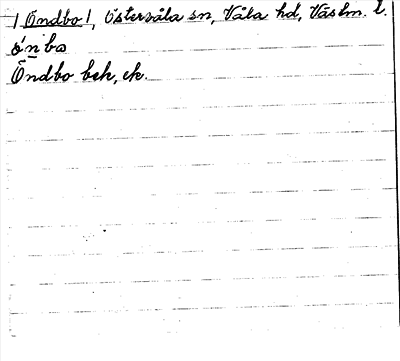 ! Öndbo !, Östervåla sn, Våla hd, Västm. l.
ö́nbo
Öndbo beh, ek.